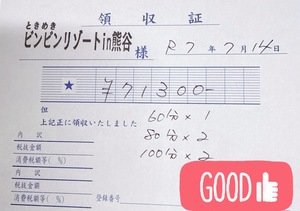 領収証
ときめき
ピンピンリゾートin熊谷 様
R7年7月14日
★ ¥71300-
但 60分×1
上記正に領収いたしました
80分×2
100分×2
内訳
税抜金額
消費税額等(%)
内訳
税抜金額
消費税額等(%)
登録番号
GOOD